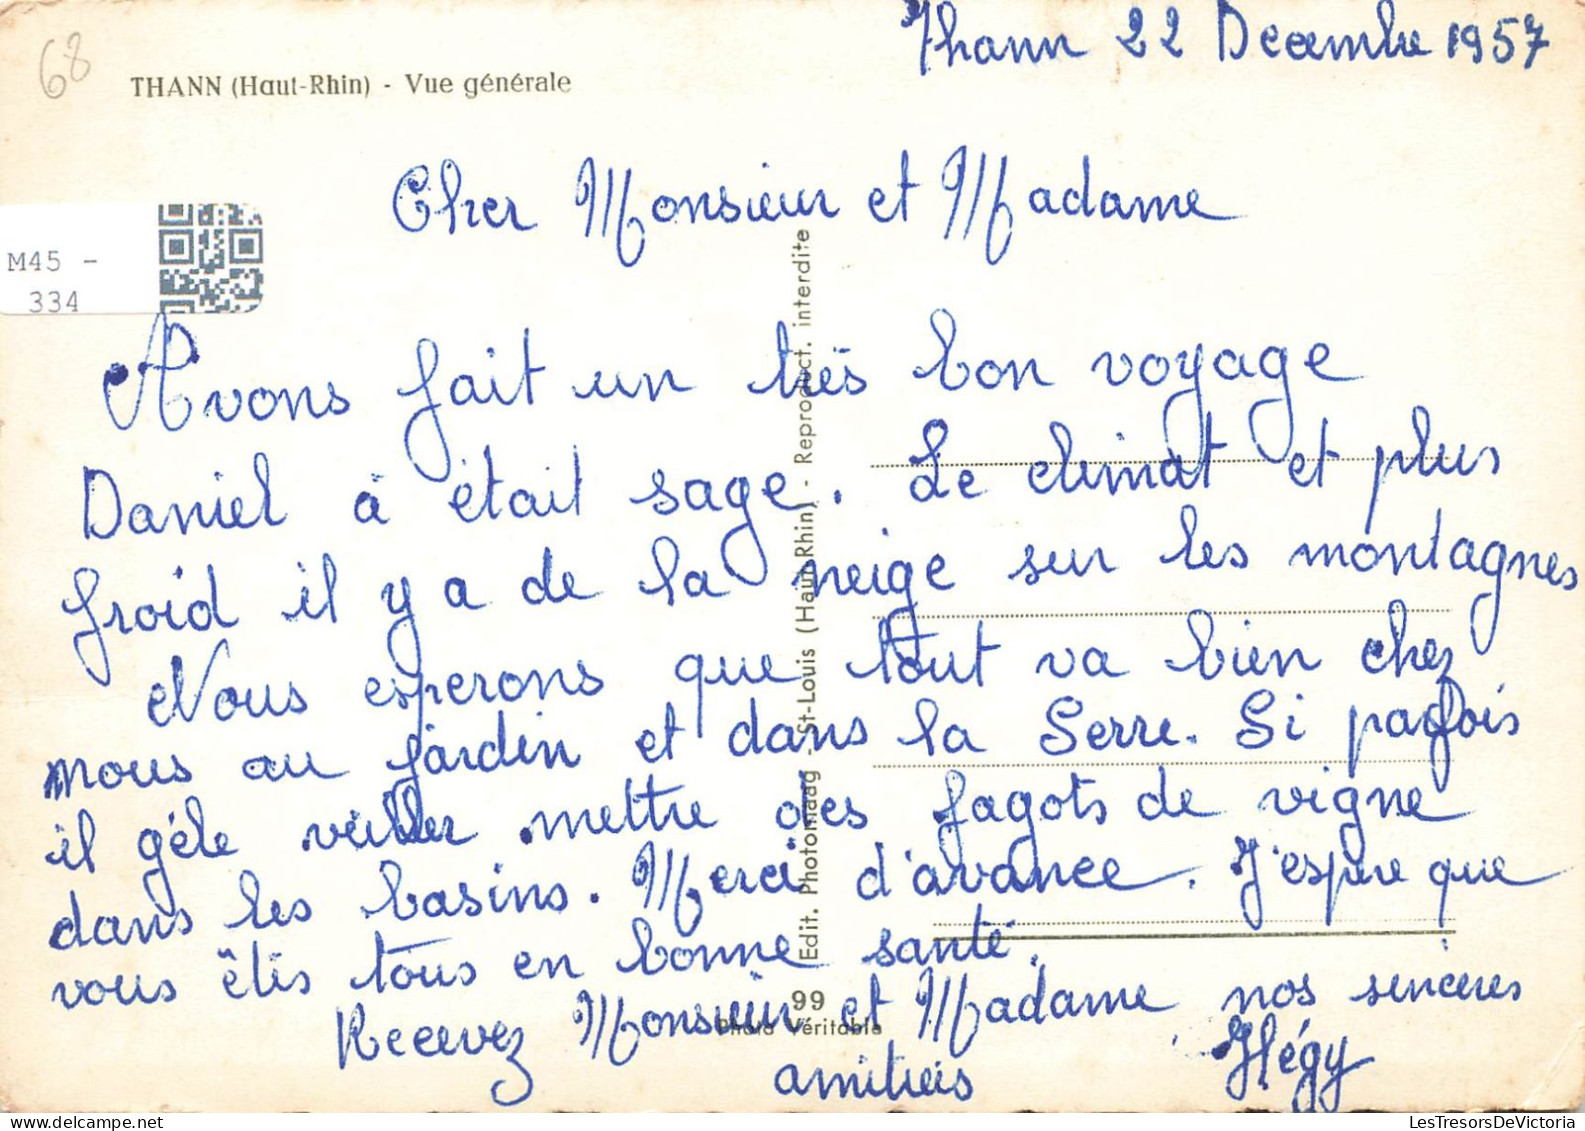 Thann 22 Decembre 1957
68
THANN (Haut-Rhin) - Vue générale
Cher Monsieur et Madame
M45 -
334
Avons fait un très bon voyage
Daniel à était sage. Le climat et plus
froid il y a de la neige sur les montagnes
Nous esperons que tout va bien chez
nous au jardin et dans la Serre. Si parfois
il géle veiller mettre des fagots de vigne
dans les basins. Merci d'avance. J'espere que
vous êtis tous en bonne santé.
Recevez Monsieur et Madame nos sincères
amitiés Hégy
Edit. Photomaag - St-Louis (Haut-Rhin) - Reproduct. interdite
99
Photo Véritable
LesTresorsDeVictoria